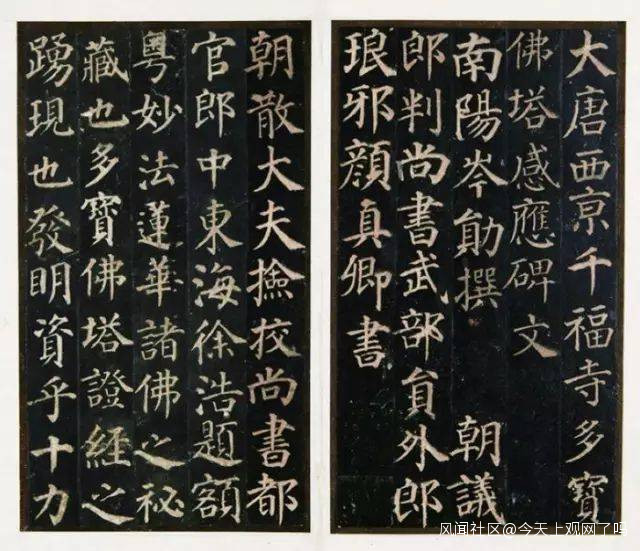 大唐西京千福寺多寶
佛塔感應碑文
南陽岑勛撰 朝議
郎判尚書武部員外郎
琅邪顏真卿書
朝散大夫撿挍尚書都
官郎中東海徐浩題額
粵妙法蓮華諸佛之秘
藏也多寶佛塔證經之
踴現也發明資乎十力
风闻社区@今天上观网了吗